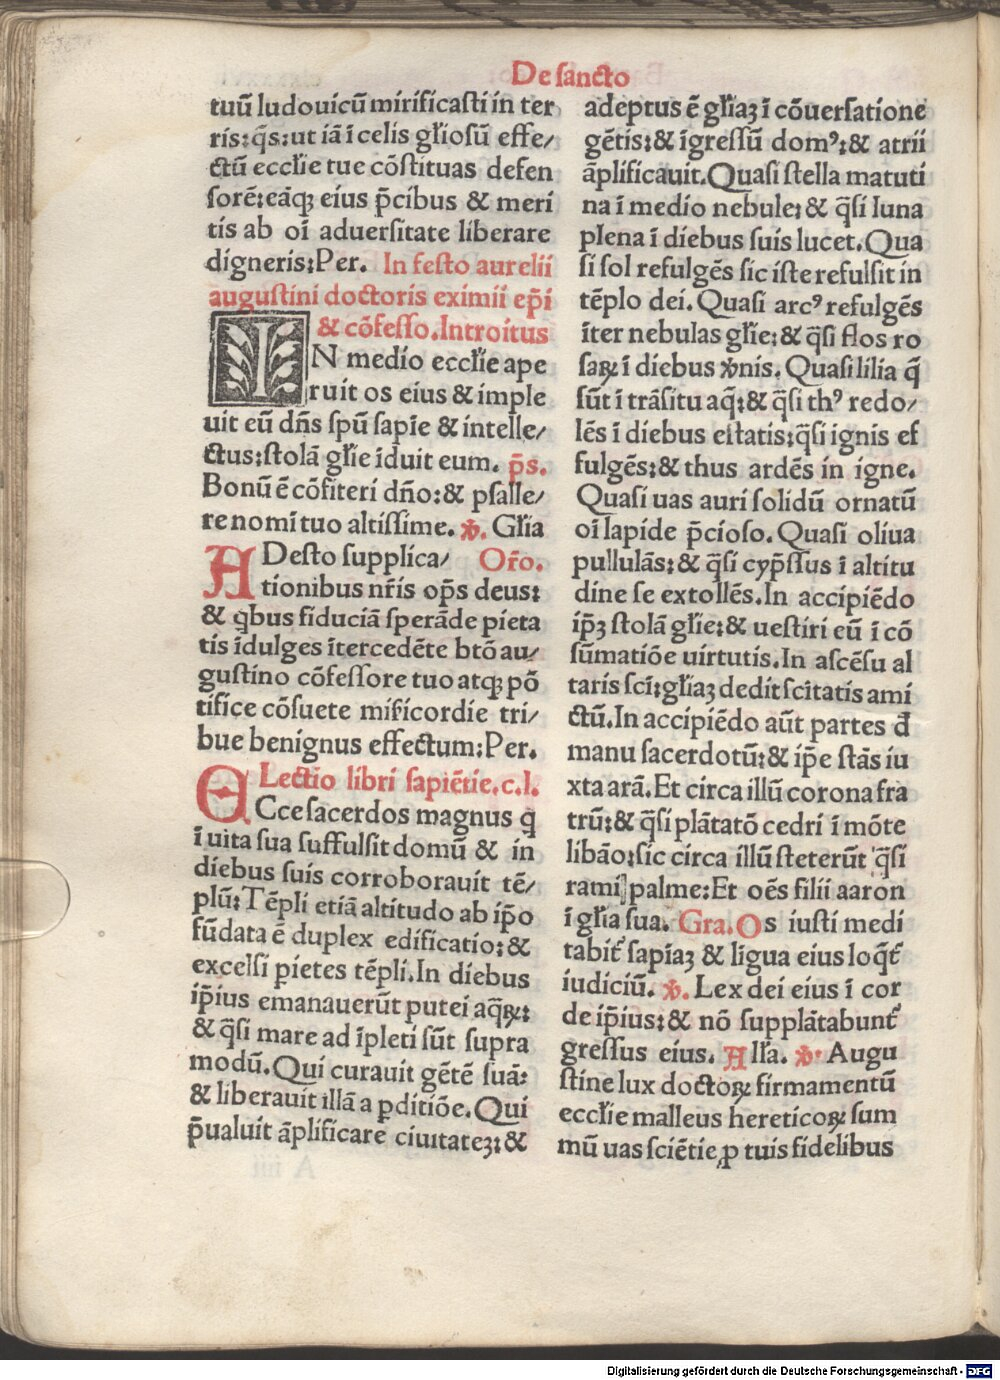 De sancto
tuū ludouicū mirificasti in ter
ris:q̄s:ut iā ī celis gl̄iosū effe/
ctū eccl̄ie tue cōstituas defen
sorē:eāqꝫ eius p̄cibus & meri
tis ab oī aduersitate liberare
digneris:Per. In festo aurelii
augustini doctoris eximii ep̄i
& cōfesso.Introitus
IN medio eccl̄ie ape
ruit os eius & imple
uit eū dn̄s spū sapīe & intelle/
ctus:stolā gl̄ie īduit eum. p̄s.
Bonū ē cōfiteri dn̄o:& psalle/
re nomī tuo altissime. ꝟ. Gl̄ia
ADesto supplica/ Or̄o.
tionibus nr̄is op̄s deus:
& qͥbus fiduciā sperāde pieta
tis īdulges ītercedēte btō au/
gustino cōfessore tuo atqꝫ pō
tifice cōsuete mīficordie tri/
bue benignus effectum:Per.
Lectio libri sapiētie.c.l.
ECce sacerdos magnus qͥ
ī uita sua suffulsit domū & in
diebus suis corroborauit tē/
plū:Tēpli etiā altitudo ab ip̄o
fūdata ē duplex edificatio:&
excelsi pietes tēpli.In diebus
ip̄ius emanauerūt putei aq̄ꝝ:
& q̄si mare ad īpleti sūt supra
modū.Qui curauit gētē suā:
& liberauit illā a ꝑditiōe.Qui
p̄ualuit āplificare ciuitateꝫ:&
adeptus ē gl̄iaꝫ ī cōuersatione
gētis:& īgressū domꝰ:& atrii
āplificauit.Quasi stella matuti
na ī medio nebule:& q̄si luna
plena ī diebus suis lucet.Qua
si sol refulgēs sic iste refulsit in
tēplo dei.Quasi arcꝰ refulgēs
īter nebulas gl̄ie:& q̄si flos ro
saꝝ ī diebus ꝟnis.Quasi lilia q̄
sūt ī trāsitu aq̄:& q̄si thꝰ redo/
lēs ī diebus eſtatis:q̄si ignis ef
fulgēs:& thus ardēs in igne.
Quasi uas auri solidū ornatū
oī lapide p̄cioso.Quasi oliua
pullulās:& q̄si cyp̄ssus ī altitu
dine se extollēs.In accipiēdo
ip̄ꝫ stolā gl̄ie:& uestiri eū ī cō
sūmatiōe uirtutis.In ascēsu al
taris scī:gl̄iaꝫ dedit scītatis ami
ctū.In accipiēdo aūt partes đ
manu sacerdotū:& ip̄e stās iu
xta arā.Et circa illū corona fra
trū:& q̄si plātatō cedri ī mōte
libāo:sic circa illū steterūt q̄si
rami palme:Et oēs filii aaron
ī gl̄ia sua. Gra.Os iusti medi
tabit᷑ sapīaꝫ & līgua eius loq̄t᷑
iudiciū. ꝟ. Lex dei eius ī cor
de ip̄ius:& nō supplātabunt᷑
gressus eius. All̄a. ꝟ. Augu
stine lux doctoꝝ firmamentū
eccl̄ie malleus hereticoꝝ sum
mū uas sciētie ꝓ tuis fidelibus
Digitalisierung gefördert durch die Deutsche Forschungsgemeinschaft - DFG